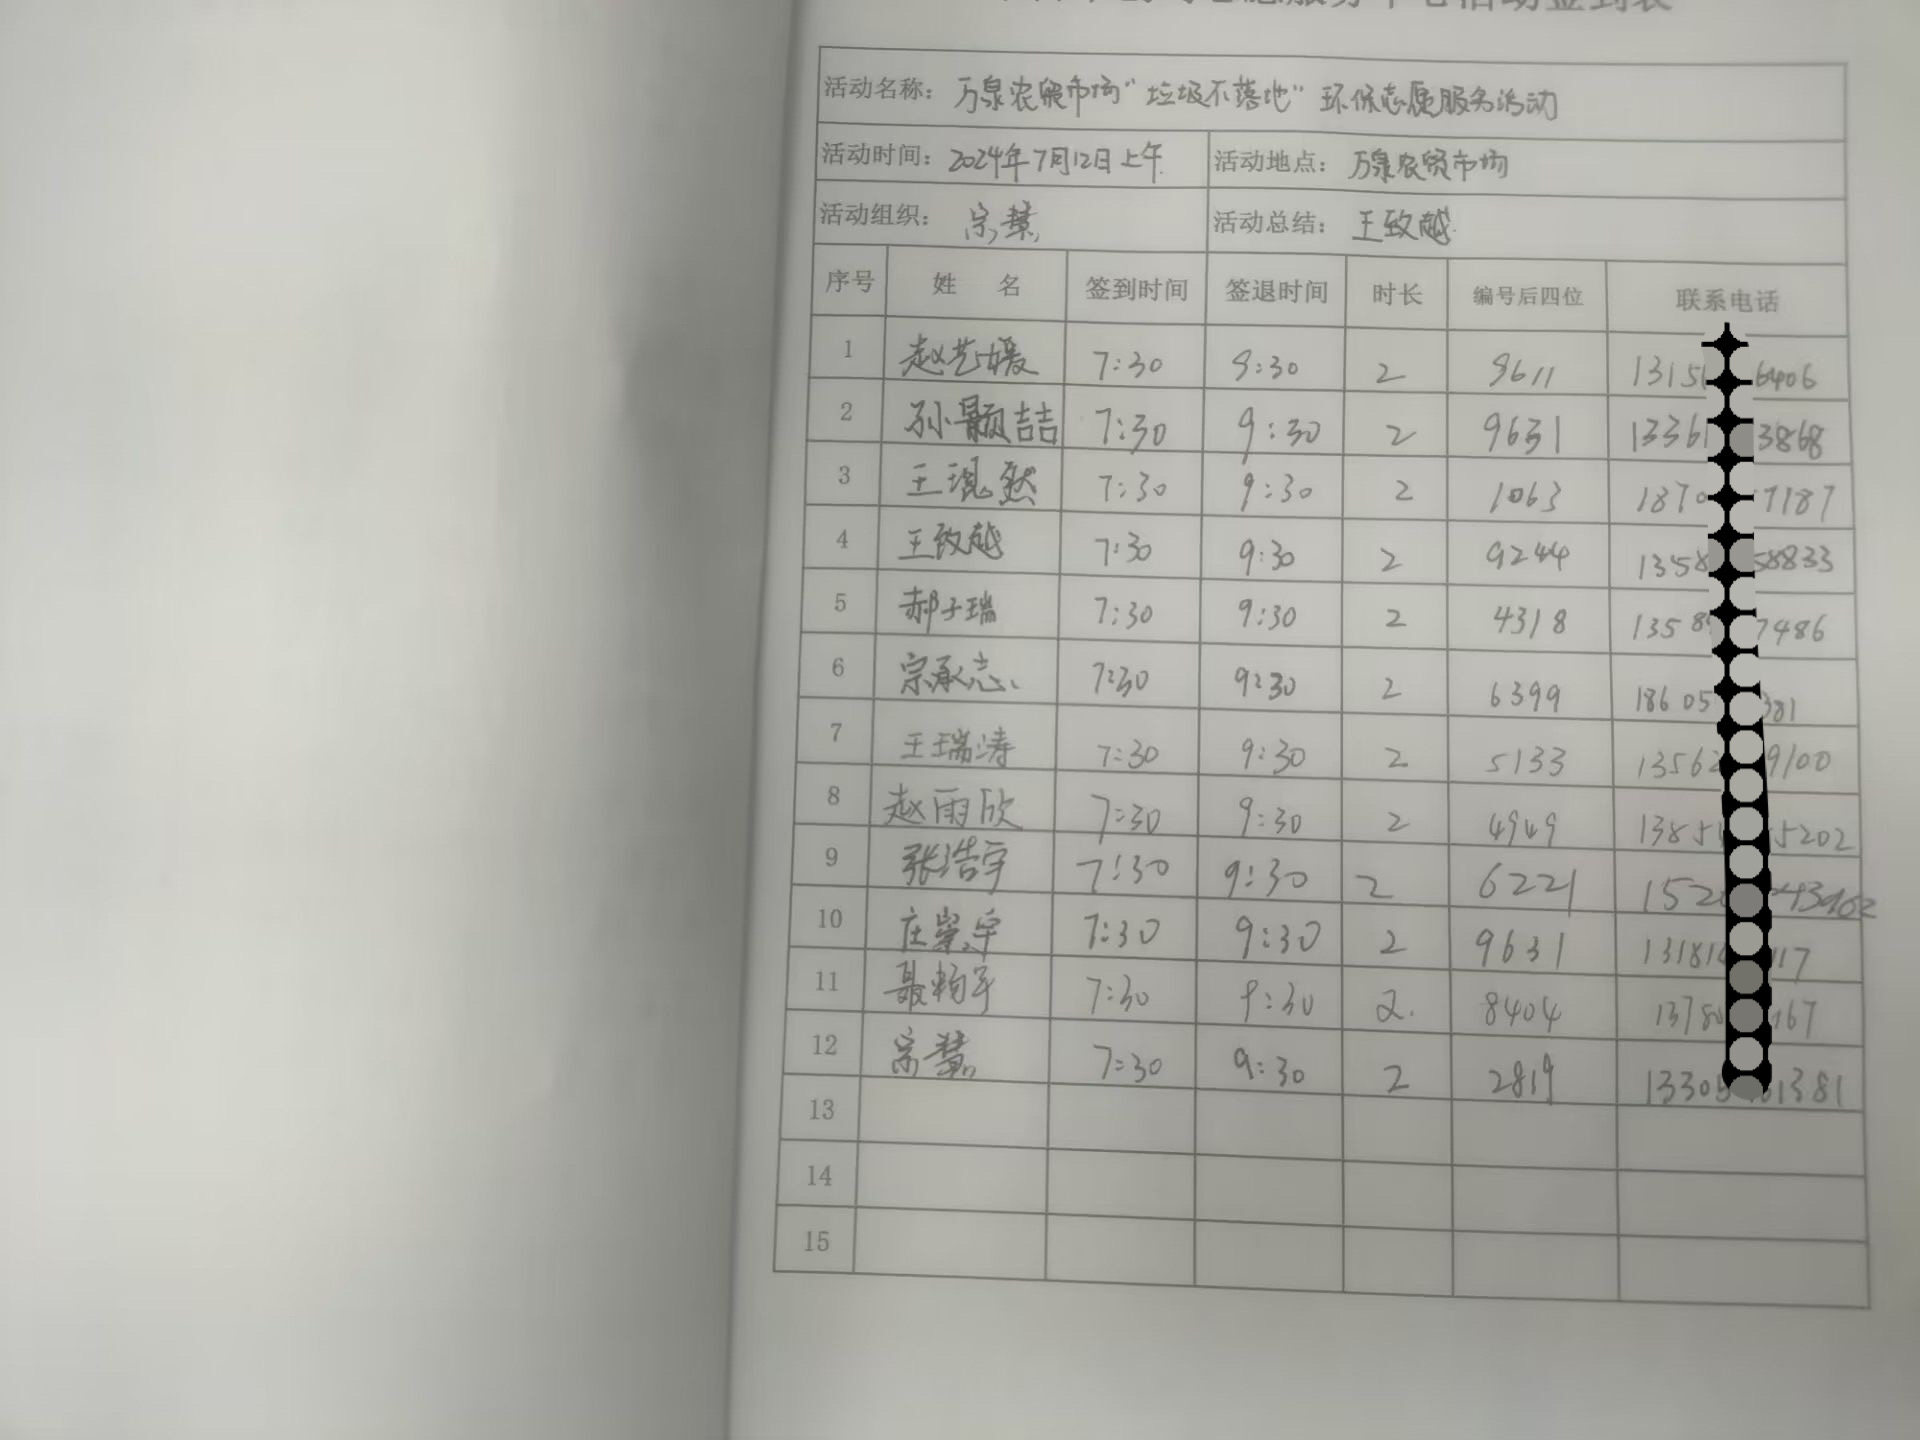 活动签到表
活动名称：万泉农贸市场“垃圾不落地”环保志愿服务活动
活动时间：2024年7月12日上午 活动地点：万泉农贸市场
活动组织：宗慧 活动总结：王致越
序号 姓名 签到时间 签退时间 时长 编号后四位 联系电话
1 赵艺媛 7:30 9:30 2 9611 1315 6406
2 孙颢喆 7:30 9:30 2 9631 13361 3868
3 王琨然 7:30 9:30 2 1063 1870 7187
4 王致越 7:30 9:30 2 9244 1358 58833
5 郝子瑞 7:30 9:30 2 4318 1358 7486
6 宗承志 7:30 9:30 2 6399 18605 381
7 王瑞涛 7:30 9:30 2 5133 13562 9100
8 赵雨欣 7:30 9:30 2 4949 1385 5202
9 张浩宇 7:30 9:30 2 6221 152
10 庄崇宇 7:30 9:30 2 9631 13181 117
11 聂柏军 7:30 9:30 2. 8404 1378 167
12 宗慧 7:30 9:30 2 2819 1330 1381
13
14
15